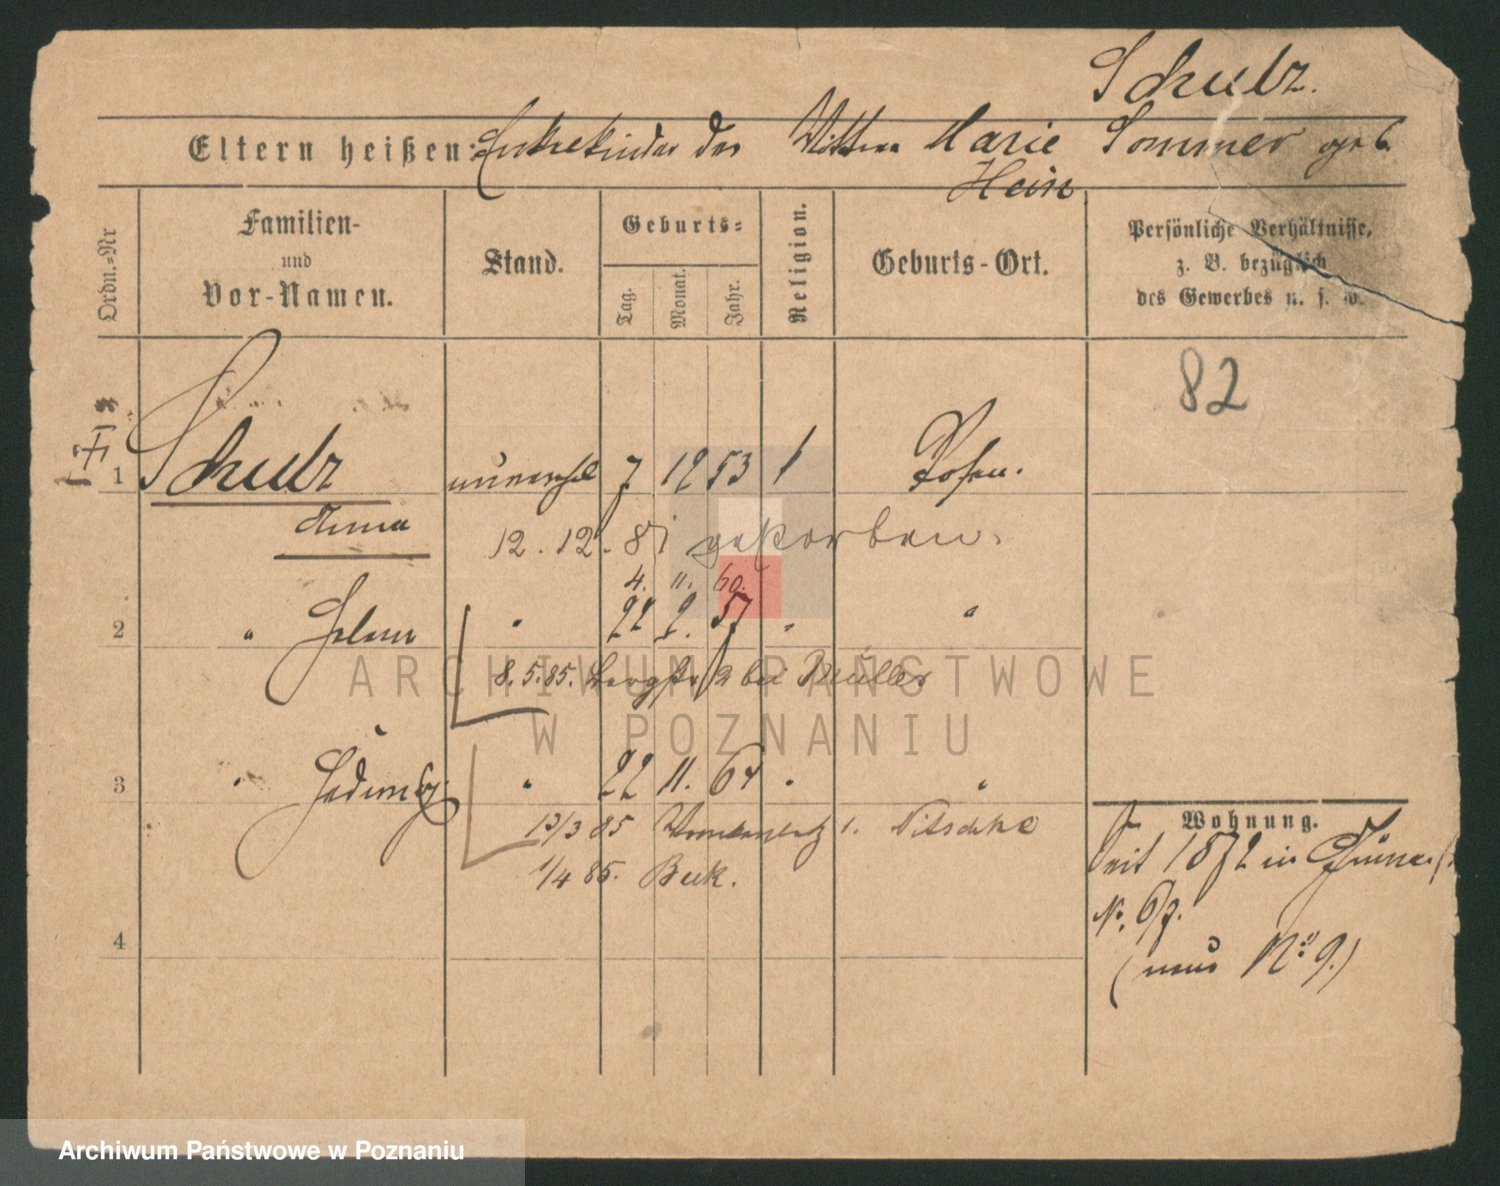 Schulz.
Eltern heißen: Enkelkinder der Wittwe Marie Sommer geb.
Hein
Ordn.-Nr
Familien-
und
Vor-Namen.
Stand.
Geburts-
Tag.
Monat.
Jahr.
Religion.
Geburts-Ort.
Persönliche Verhältnisse,
z. B. bezüglich
des Gewerbes u. s. w.
82
1 Schulz unverehel 7 12 53 Posen.
Anna
12. 12. 81 gestorben.
4. 11. 60.
2 " Helene " 22 2. 57 " "
8. 5. 85. Bergstr 12 bei Müller
3 " Hedwig " 22 11. 64 " "
13/3 85 Nitschke
1/4 85. Beck.
4
Wohnung.
Seit 1872 in
No. 67.
(neue No. 9.)
ARCHIWUM PAŃSTWOWE
W POZNANIU
Archiwum Państwowe w Poznaniu